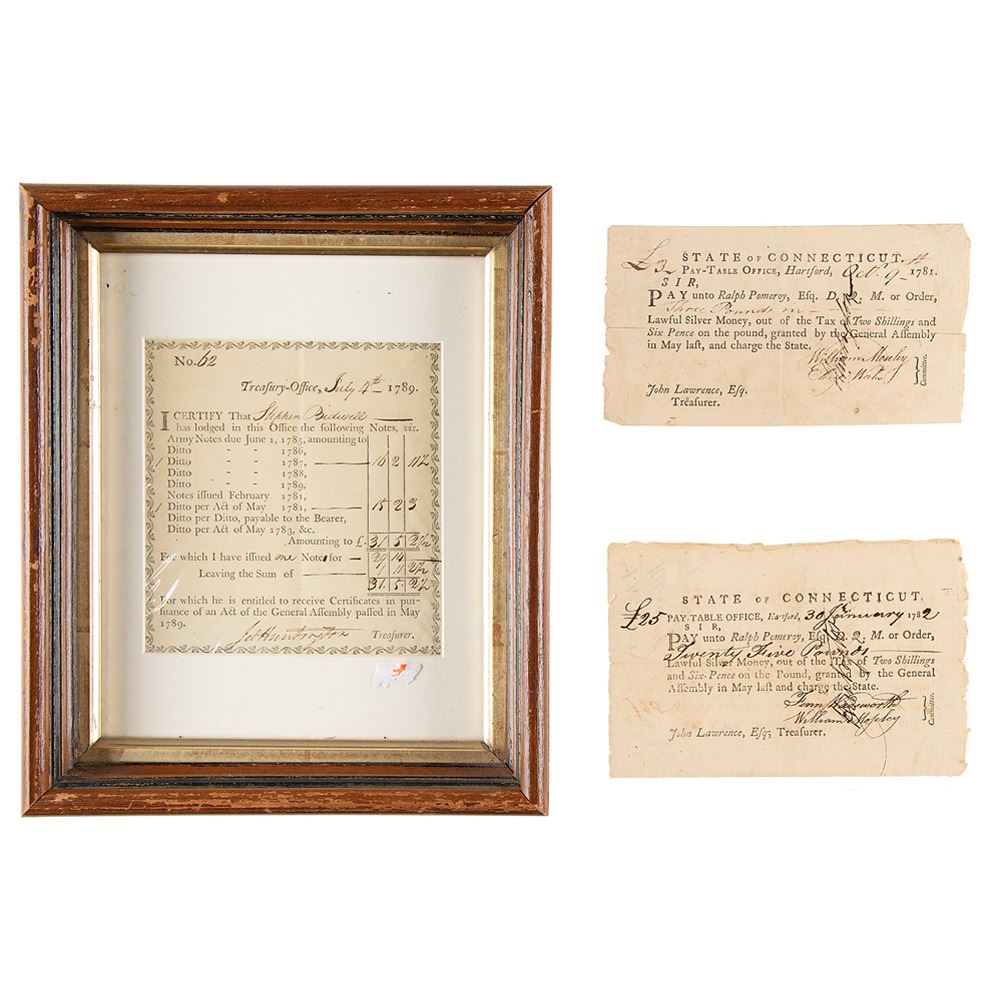 No. 62
Treasury-Office, July 4th 1789.
I CERTIFY That Stephen Bidwell
has lodged in this Office the following Notes, viz.
Army Notes due June 1, 1785, amounting to
Ditto - - 1786,
Ditto - - 1787, 16 2 11½
Ditto - - 1788,
Ditto - - 1789,
Notes iſſued February 1781,
Ditto per Act of May 1781, 15 2 3
Ditto per Ditto, payable to the Bearer,
Ditto per Act of May 1783, &c.
Amounting to £. 31 5 2½
For which I have iſſued one Note, for 29 14
Leaving the Sum of 1 11 2½
31 5 2½
For which he is entitled to receive Certificates in pur-
ſuance of an Act of the General Aſſembly paſſed in May
1789.
Jed Huntington Treaſurer.
STATE OF CONNECTICUT.
£3 PAY-TABLE OFFICE, Hartford, Octr. 9th 1781.
SIR,
PAY unto Ralph Pomeroy, Eſq. D. Q. M. or Order,
Three Pounds in
Lawful Silver Money, out of the Tax of Two Shillings and
Six Pence on the pound, granted by the General Aſſembly
in May laſt, and charge the State.
William Moseley
Committee.
John Lawrence, Eſq.
Treaſurer.
STATE OF CONNECTICUT.
£25 PAY-TABLE OFFICE, Hartford, 30 January 1782
SIR,
PAY unto Ralph Pomeroy, Eſq. D. Q. M. or Order,
Twenty Five Pounds
Lawful Silver Money, out of the Tax of Two Shillings
and Six-Pence on the Pound, granted by the General
Aſſembly in May laſt and charge the State.
Fenn Wadsworth
William Moseley
Committee.
John Lawrence, Eſq; Treaſurer.